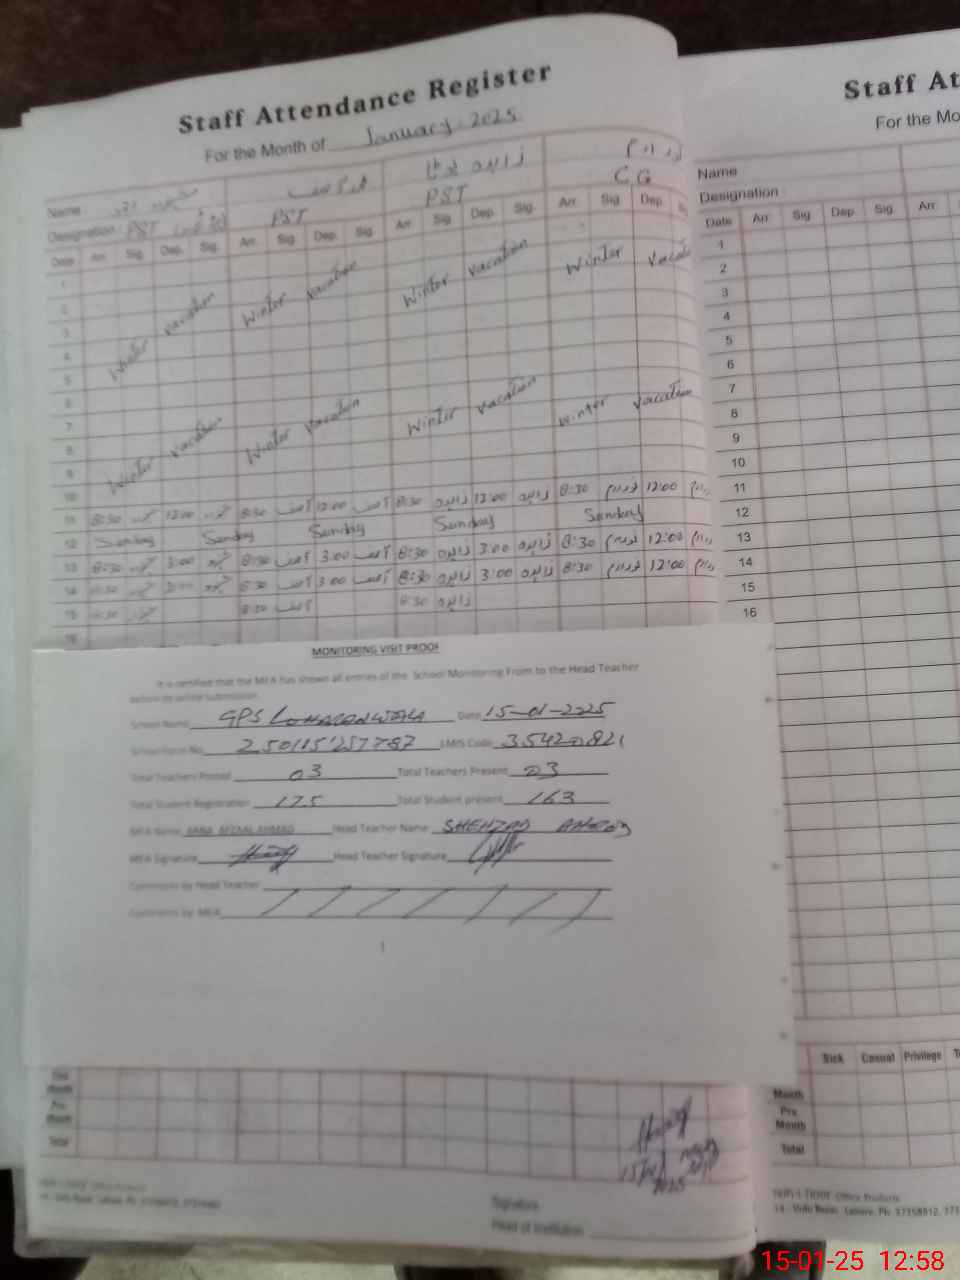 Staff Attendance Register
For the Month of January 2025
Name شہزاد احمد آصف زاہدہ
Designation PST PST PST CG
Date Arr Sig Dep Sig Arr Sig Dep Sig Arr Sig Dep Sig Arr Sig Dep
1
2 Winter vacation Winter vacation Winter vacation Winter vacation
3
4
5
6
7
8 Winter vacation Winter vacation Winter vacation Winter vacation
9
10
11 8:30 12:00 8:30 آصف 12:00 آصف 8:30 زاہدہ 12:00 زاہدہ 8:30 12:00
12 Sunday Sunday Sunday Sunday Sunday
13 8:30 3:00 8:30 آصف 3:00 آصف 8:30 زاہدہ 3:00 زاہدہ 8:30 12:00
14 8:30 3:00 8:30 آصف 3:00 آصف 8:30 زاہدہ 3:00 زاہدہ 8:30 12:00
15 8:30 8:30 آصف 8:30 زاہدہ
16
MONITORING VISIT PROOF
It is certified that the MEA has shown all entries of the School Monitoring From to the Head Teacher
before its online submission.
School Name GPS Date 15-01-2025
EMIS Code 35420821
Total Teachers Posted 03 Total Teachers Present 03
Total Student Registration 175 Total Student present 163
MEA Name RANA AFZAAL AHMAD Head Teacher Name SHEHZAD AHMAD
MEA Signature Head Teacher Signature
Comments by Head Teacher
Comments by MEA
1
This Month
Pre Month
Total
15/01/2025
Signature
Head of Institution
Staff At
For the Mo
Name
Designation
Date Arr Sig Dep Sig Arr
1
2
3
4
5
6
7
8
9
10
11
12
13
14
15
16
Sick Casual Privilege
Month
Pre Month
Total
Office Products
Lahore. Ph: 37358812, 373
15-01-25 12:58